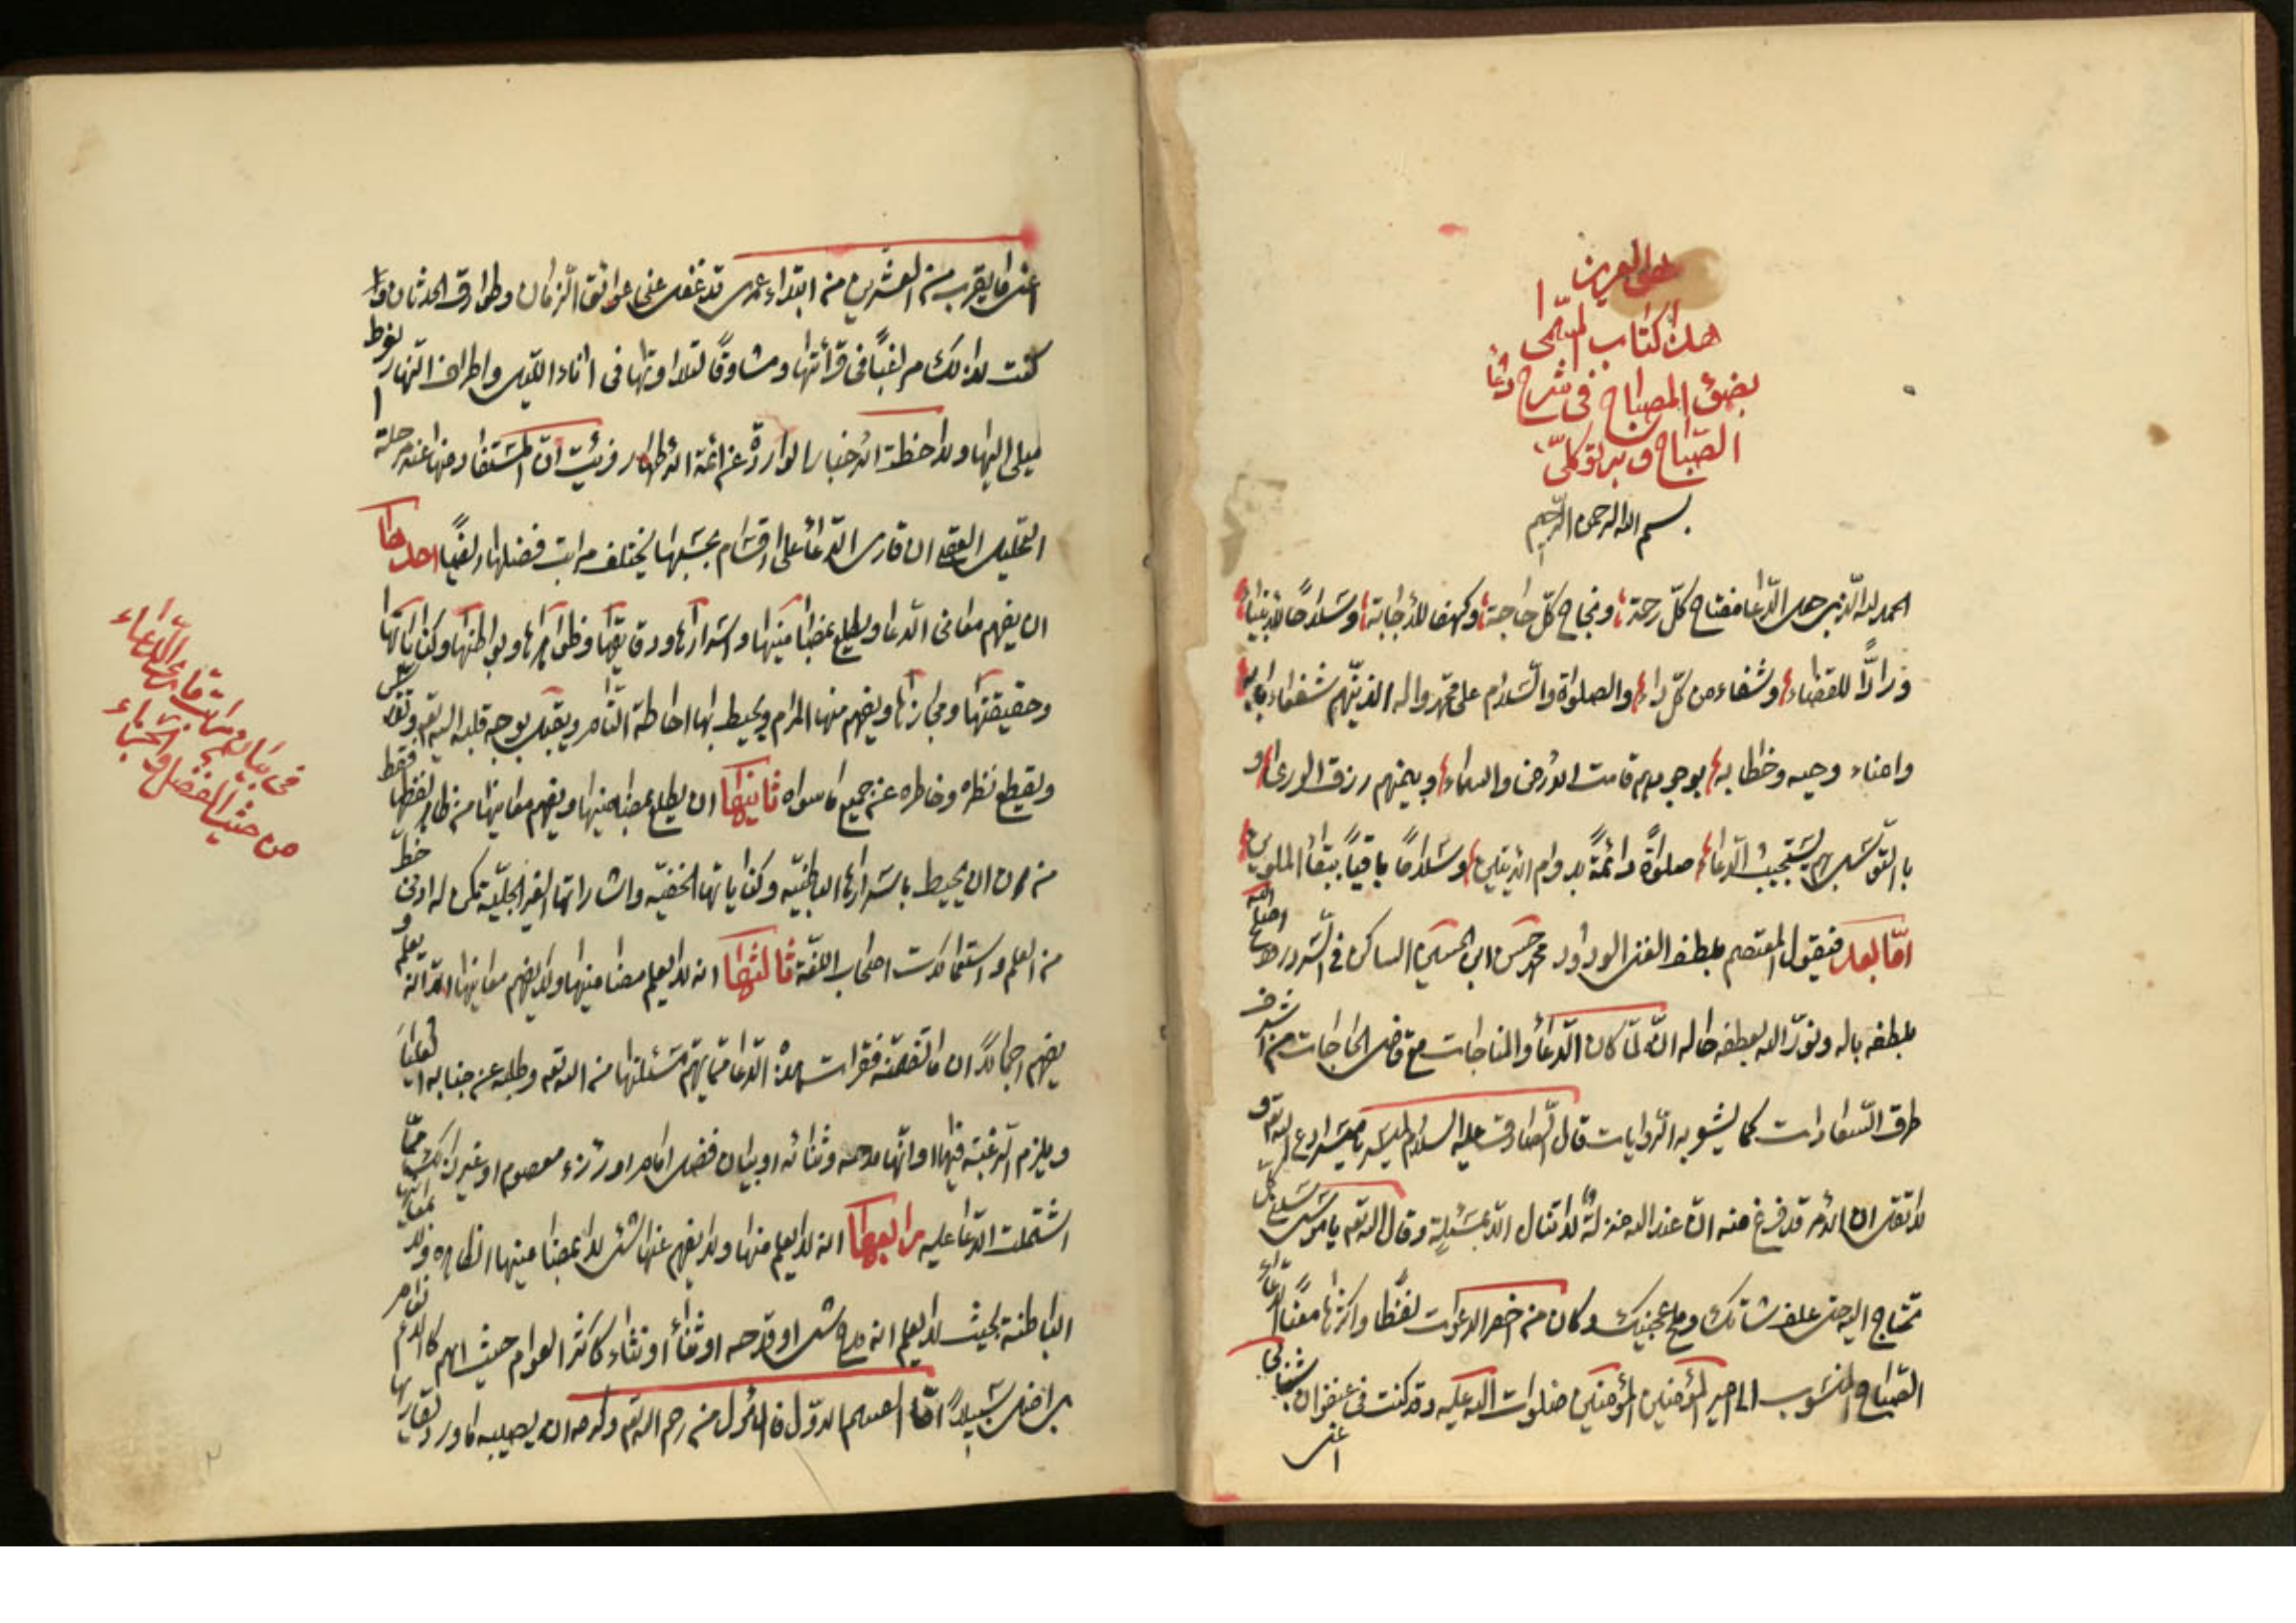 هو العزيز
هذا كتاب المسمى
بضوء المصباح في شرح دعاء
الصباح وبه توكلي
بسم الله الرحمن الرحيم
الحمد لله الذي جعل الدعاء مفتاح كل رحمة ونجاح كل حاجة وكهفا للاجابة وسلاحا للانبياء
ورادّا للقضاء وشفاء من كل داء والصلوة والسلام على محمد واله الذين هم شفعاء
وامناء وحيه وخطابه بوجودهم قامت الارض والسماء وبيمنهم رزق الورى و
بالتوسل بهم يستجيب الدعاء صلوة دائمة بدوام وسلاما باقيا ببقاء الملوين
امّا بعد فيقول المعتصم بلطف الغني الودود محمد حسن ابن الحسين الساكن في اصلح الله
بلطفه باله ونور الله بعطفه حاله انه لمّا كان الدعاء والمناجات مع قاضي الحاجات من اشرف
طرق السعادات كما يشير به الروايات قال الصادق عليه السلام لميسر يا ميسر ادع الله تع و
لا تقل ان الامر قد فرغ منه ان عند الله منزلة لا تنال الا بمسئلة وقال الله تع يا موسى سلني كل
تحتاج اليه حتى علف شاتك وملح عجينك وكان من اخصر الدعوات لفظا واكثرها معنا دعاء
الصباح المنسوب الى امير المؤمنين صلوات الله عليه وقد كنت في عنفوان شبابي
اعني
اعني ما يقرب من العشرين من ابتداء عمري قد غفل عني عوائق الزمان وطوارق الحدثان و
كنت لذلك مراغبا في قرائتها ومشاوقا لتلاوتها في اناء الليل واطراف النهار لفرط
ميلي اليها ولاحظت الاخبار الواردة عن ائمة الاطهار فرئيت ان المستفاد منها
العقل ان قارى الدعاء على اقسام بحسبها يختلف مراتب فضلها احدها
ان يفهم معاني الدعاء ويطلع بمضامينها واسرارها ودقايقها وظواهرها وبواطنها وكناياتها
وحقيقتها ومجازها ويفهم منها المرام ويحيط بها احاطة التام ويقبل بوجه قلبه الى الله تع
ويقطع نظره وخاطره عن جميع ما سواه ثانيها ان يطلع بمضامينها ويفهم معانيها من ظاهر لفظها فقط
من دون ان يحيط باسرارها الباطنيه وكناياتها الخفيه واشاراتها الغير الجليّه لكن له ادنى حظ
من العلم واستعمالات اصحاب اللغة ثالثها انه لا يعلم مضامينها ولا يفهم معانيها الا انه يعلم و
يفهم اجمالا ان ما تضمنه فقرات هذه الدعاء ممّا يهمّ مسئلتها من الله تع وطلبه عن جنابه
ويلزم الرغبة فيها او انها مدحه وثنائه او بيان فضل امام او رزء معصوم او غير ذلك ممّا
اشتملت الدعاء عليه رابعها انه لا يعلم منها ولا يفهم عنها الشئ لا بمضامينها الظاهرة ولا
الباطنة بحيث لا يعلم انه مدح شئ او قدحه او ثناء كاكثر العوام حيث انهم كالانعام
بل اضل سبيلا امّا القسم الاول فالمأمول من رحم الله تع وكرمه ان يصيبه ما ورد
في بيان مراتب قارى الدعاء
من حيث الفضل والجزاء